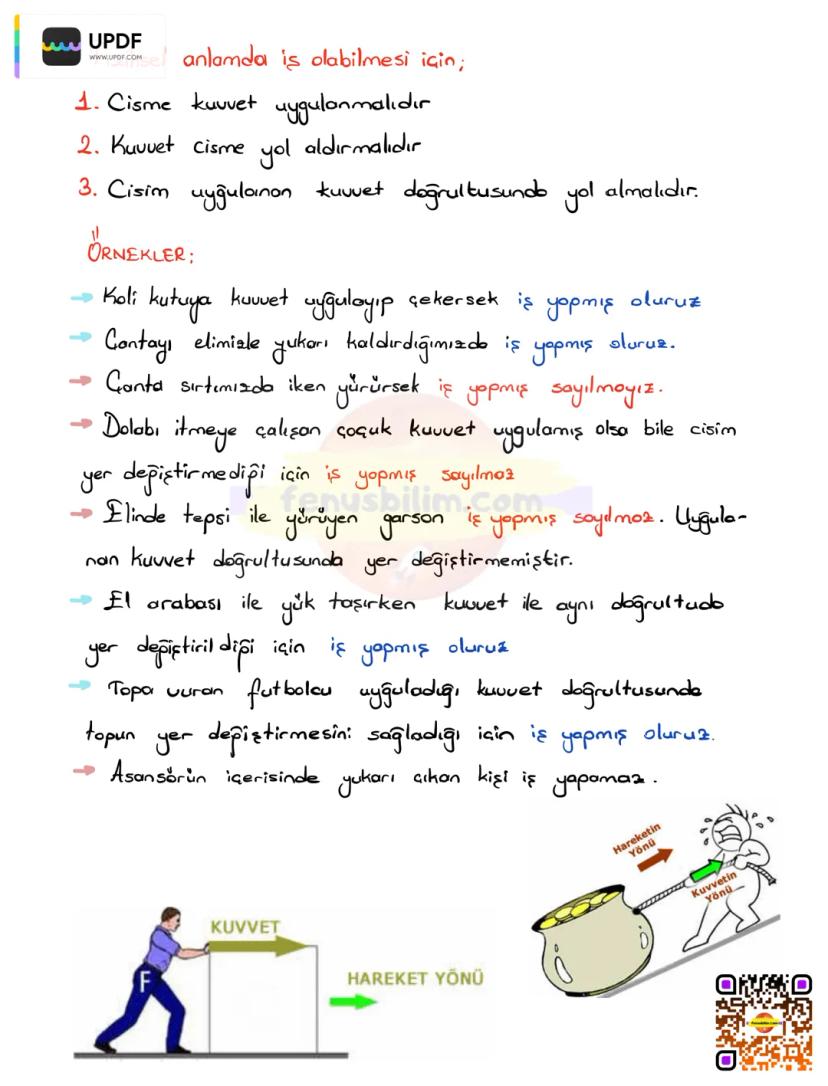 UPDF
WWW.UPDF.COM
anlamda iş olabilmesi için;
1. Cisme kuvvet uygulanmalıdır
2. Kuvvet cisme yol aldırmalıdır
3. Cisim uygulanan kuvvet doğrultusunda yol almalıdır.
ÖRNEKLER;
→ Koli kutuya kuvvet uygulayıp çekersek iş yapmış oluruz
→ Çantayı elimizle yukarı kaldırdığımızda iş yapmış oluruz.
→ Çanta sırtımızda iken yürürsek iş yapmış sayılmayız.
→ Dolabı itmeye çalışan çocuk kuvvet uygulamış olsa bile cisim
yer depiştirmedipi için iş yapmış sayılmaz
fenusbilim.com
→ Elinde tepsi ile yürüyen garson iş yapmış sayılmaz. Uygula-
nan kuvvet doğrultusunda yer değiştirmemiştir.
→ El arabası ile yük taşırken kuvvet ile aynı doğrultuda
yer depiştirildipi için iş yapmış oluruz
→ Topa vuran futbolcu uyguladığı kuvvet doğrultusunda
topun yer depiştirmesini sağladığı için iş yapmış oluruz.
→ Asansörün içerisinde yukarı çıkan kişi iş yapamaz.
Hareketin
Yönü
Kuvvetin
Yönü
KUVVET
F
HAREKET YÖNÜ
fenusbilim.com